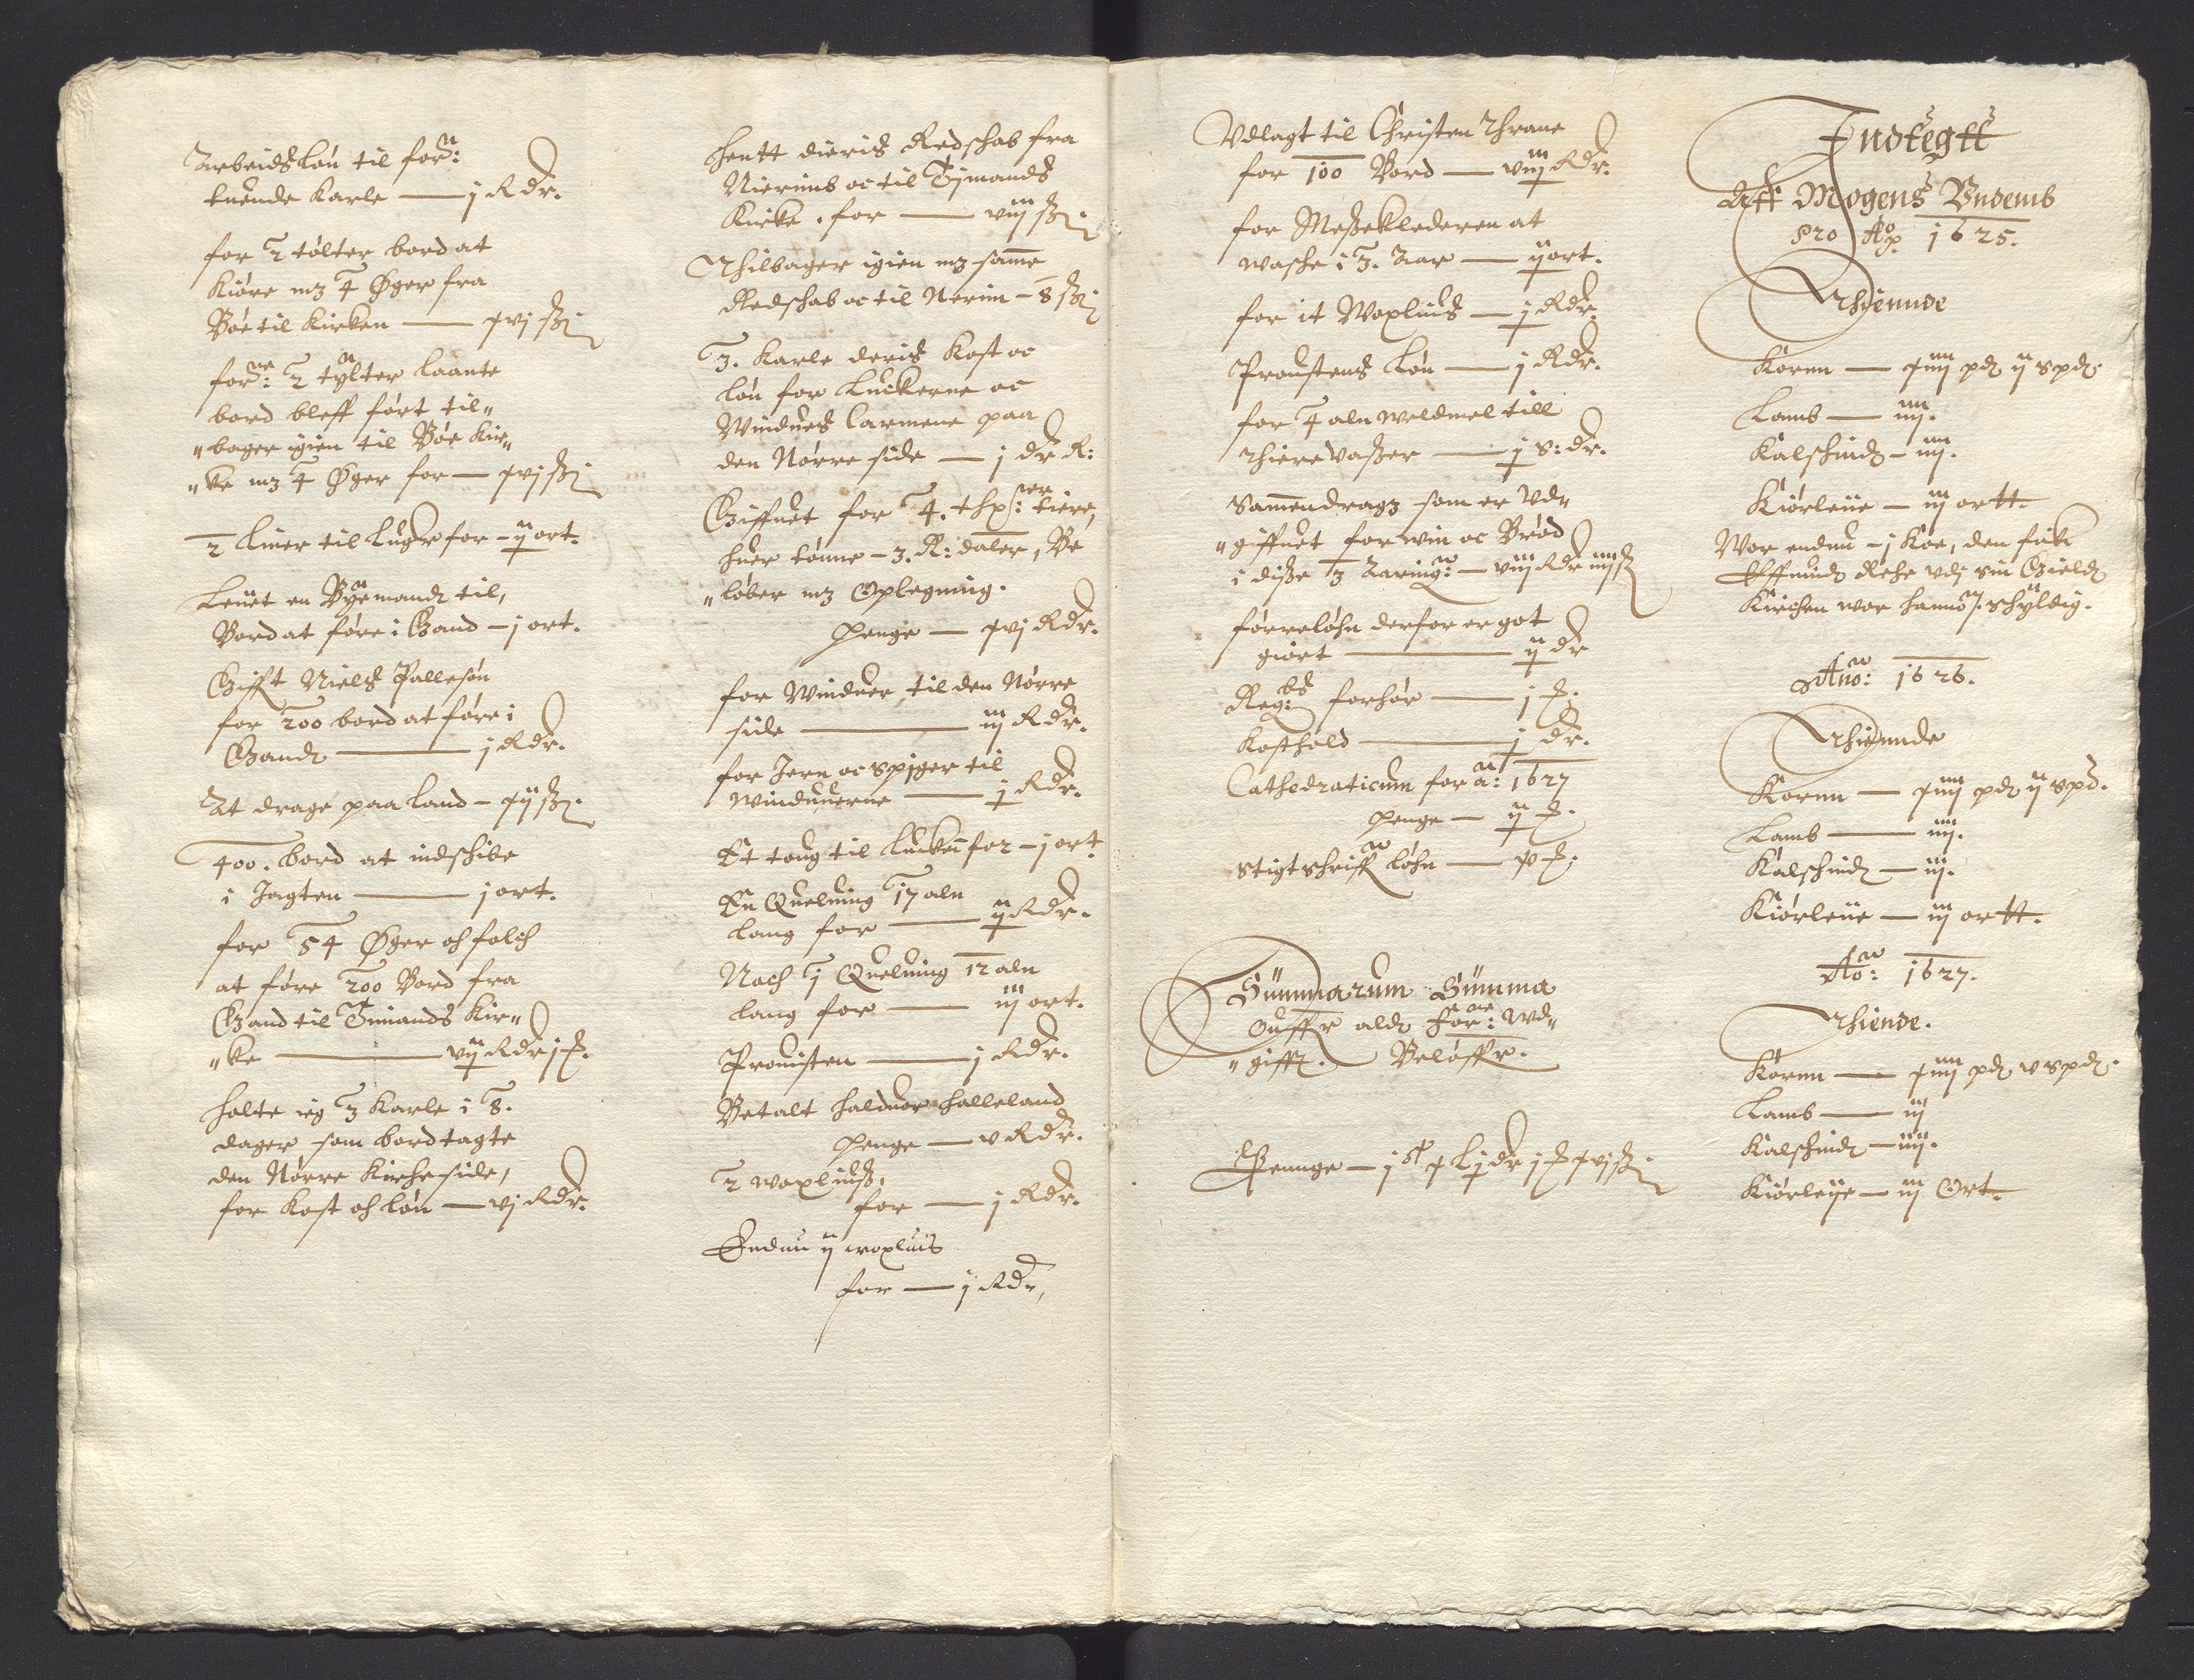 Arbeidsløn til forn:
tuende Karle — j Rdr.
for 2 tolter bord at
Kiøre mz 4 Øger fra
Bøe til Kirken — xvj ß
forne: 2 tylter laante
bord bleff ført til„
„bager igien til Bøe Kir„
„ke mz 4 Øger for — xvj ß
2 Liner til Luger for — ij ort.
Leuet en Byemand til,
Bord at føre i Gand — j ort.
Gifft Niels Pallesøn
for 200 bord at føre i
Gand — j Rdr.
At drage paa land — xij ß.
400. bord at indschibe
i Jagten — j ort.
for 54 Øger och folch
at føre 200 Bord fra
Gand til Timands Kir„
„ke — vij Rdr j
holte ieg 3 Karle i 8.
dager som bordtagte
den Nørre Kirche side,
for Kost och løn — vj Rdr.
hentt dieris Redschab fra
Nierims oc til Timands
Kircke. for — viij ß
Thilbager igien mz samme
Redschab oc til Nerim — 8 ß
3. Karle deris Kost oc
løn for Luckerne oc
Windues Carmene paa
den Nørre side — j dr R:
Giffuet for 4. thr: tiere,
huer tønne — 3. R: daler, Be
„løber mz Oplegning.
penge — xvj Rdr.
for Winduer til den Nørre
side — iij Rdr.
for Jern oc spiger til
Winduerne — j Rdr.
Et toug til for — j ort.
En Quelning 17 aln
lang for — ij Rdr.
Noch j Quelning 12 aln
lang for — iij ort.
Prouisten — j Rdr.
Betalt halduor Halleland
penge — v Rdr.
2 woxliuß,
for — j Rdr.
Endnu ij woxliuß
for — j Rdr,
Vdlagt til Christen Thrane
for 100 Bord — viij Rdr.
for Meßeklederen at
wasche i 3. Aar — ij ort.
for it Woxliuß — j Rdr.
Proustens Løn — j Rdr.
for 4 aln woldmel till
Thierevaßer — j s: dr.
Sammendragz som er Vd„
„giffuet for win oc Brød
i diße 3 Aaring: — viij Rdr iiij ß
førreløhn derfor er got
giort — ij dr
Reg: forhør — j
Kosthold — j dr.
Cathedraticum for a: 1627
penge — ij
Stigtschriff løhn — x
Summarum Summa
Ouffr aldz forne: Wd„
„gifft. Beløffr.
Penge — j x L j dr j xvj ß
Indtegtt
Aff Mogens Vndemb
pro Ao 1625.
Thiennde
Kornn — xiiij pd ij spd.
Lamb — iiij.
Kalschind — iiij.
Kiørleue — iij ortt.
Wor endnu j Koe, den fick
Effuind Rehe vdj sin Gield
Kirchen wor hannom schyldig.
Anno: 1626.
Thiennde
Kornn — xiiij pd ij spd.
Lamb — iiij.
Kalschind — iij.
Kiørleue — iij ortt.
Ao: 1627.
Thiende.
Kornn — xiiij pd v spd.
Lamb — iij
Kalschind — iiij.
Kiørleye — iij Ort.